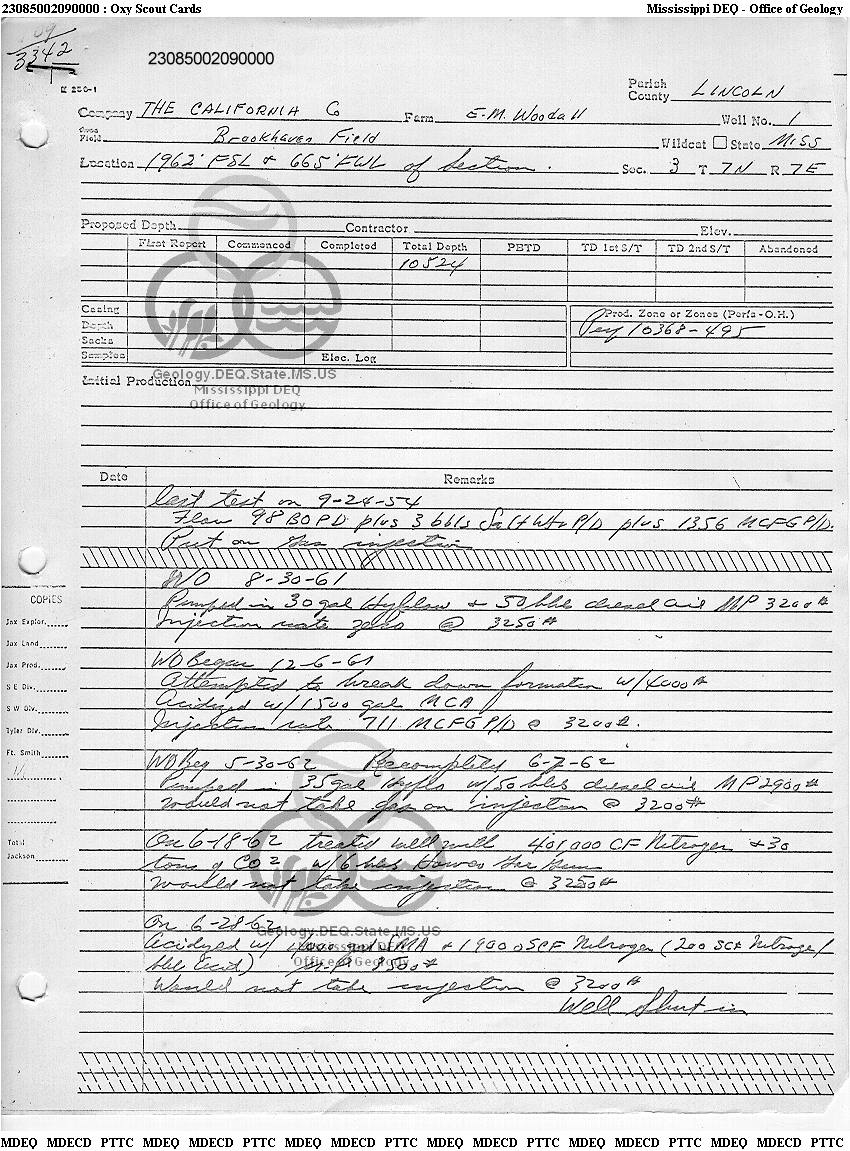 23085002090000 : Oxy Scout Cards Mississippi DEQ - Office of Geology
109
3342
23085002090000
Parish
County LINCOLN
Company THE CALIFORNIA Co Farm E.M. Woodall Well No. 1
Field Brookhaven Field Wildcat State MISS
Location 1962' FSL & 665' FWL of Section. Sec. 3 T 7N R 7E
Proposed Depth Contractor Elev.
First Report Commenced Completed Total Depth PBTD TD 1st S/T TD 2nd S/T Abandoned
10524
Casing Prod. Zone or Zones (Perfs-O.H.)
Depth Perf 10368-495
Sacks
Samples Elec. Log
Geology.DEQ.State.MS.US
Initial Production
Mississippi DEQ
Office of Geology
Date Remarks
last test on 9-24-54
Flow 98 BOPD plus 3 bbls Salt Wtr P/D plus 1356 MCFG P/D.
Put on gas injection
W/O 8-30-61
COPIES
Pumped in 30 gal Hyflow & 50 bbl diesel oil MP 3200#
Jax Explor.
Injection rate zero @ 3250#
Jax Land
Jax Prod.
WO Began 12-6-61
S E Div.
Attempted to break down formation w/4000#
Acidized w/1500 gal MCA
S W Div.
Injection rate 711 MCFG P/D @ 3200#.
Tyler Div.
Ft. Smith
WO Beg 5-30-62 Recompleted 6-7-62
Pumped in 35 gal Hyflo w/50 bbls diesel oil MP 2900#
Would not take gas on injection @ 3200#
Total
Jackson
On 6-18-62 treated well with 401,000 CF Nitrogen & 30
tons of CO2 w/6 bbls
Would not take injection @ 3250#
On 6-28-62
Geology.DEQ.State.MS.US
Acidized w/ gal & 19000 SCF Nitrogen (200 SCF Nitrogen/
Mississippi DEQ
bbl acid) 3500#
Office of Geology
Would not take injection @ 3200#
Well Shut in
MDEQ MDECD PTTC MDEQ MDECD PTTC MDEQ MDECD PTTC MDEQ MDECD PTTC MDEQ MDECD PTTC MDEQ MDECD PTTC